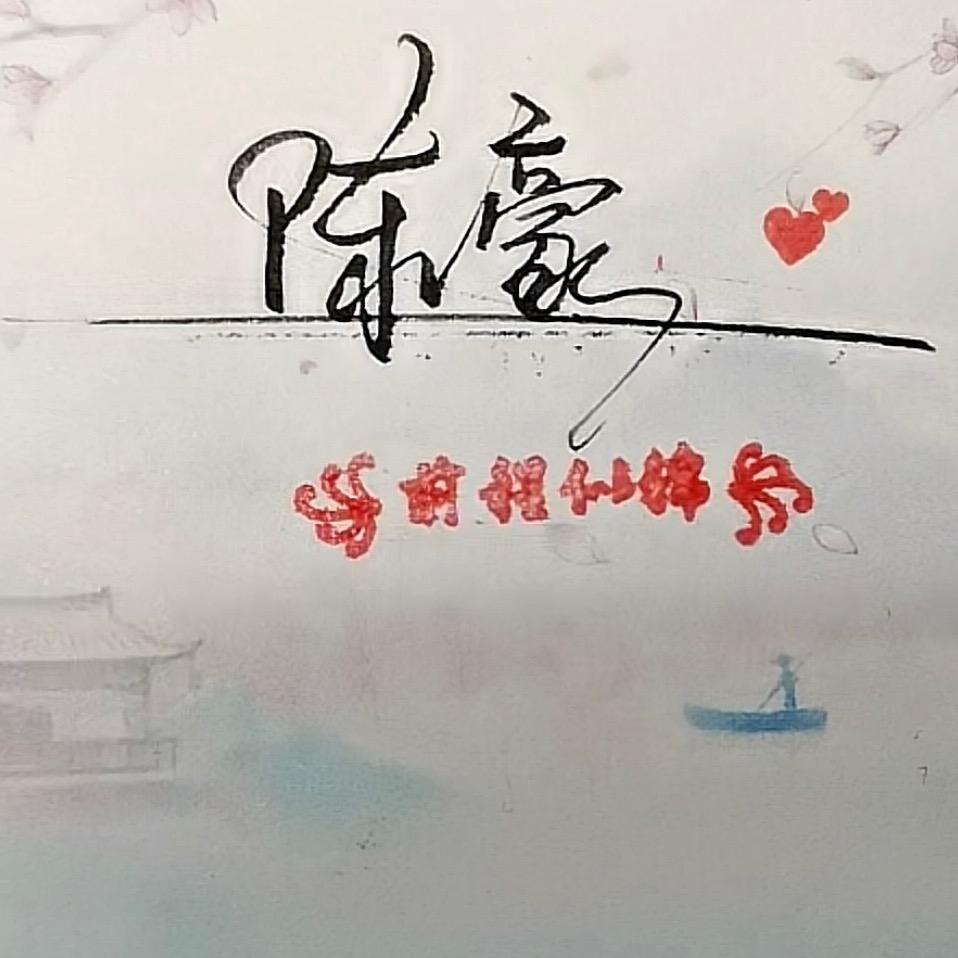 陈豪
前程似锦